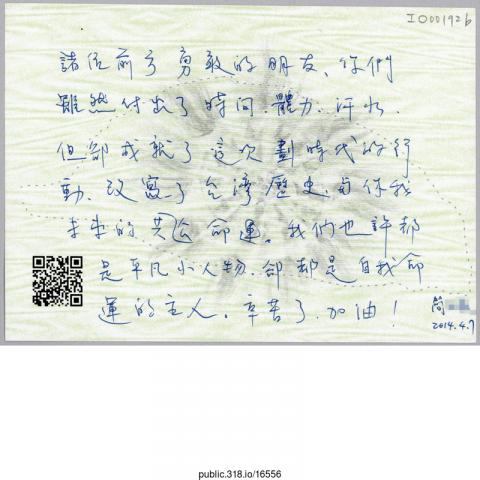 I0001926
諸位前方勇敢的朋友、你們
雖然付出了時間.體力.汗水.
但卻成就了這次劃時代的行
動.改寫了台灣歷史.與你我
未來的共公命運。我們也許都
是平凡小人物.卻都是自我命
運的主人.辛苦了.加油!
簡
2014.4.7
public.318.io/16556